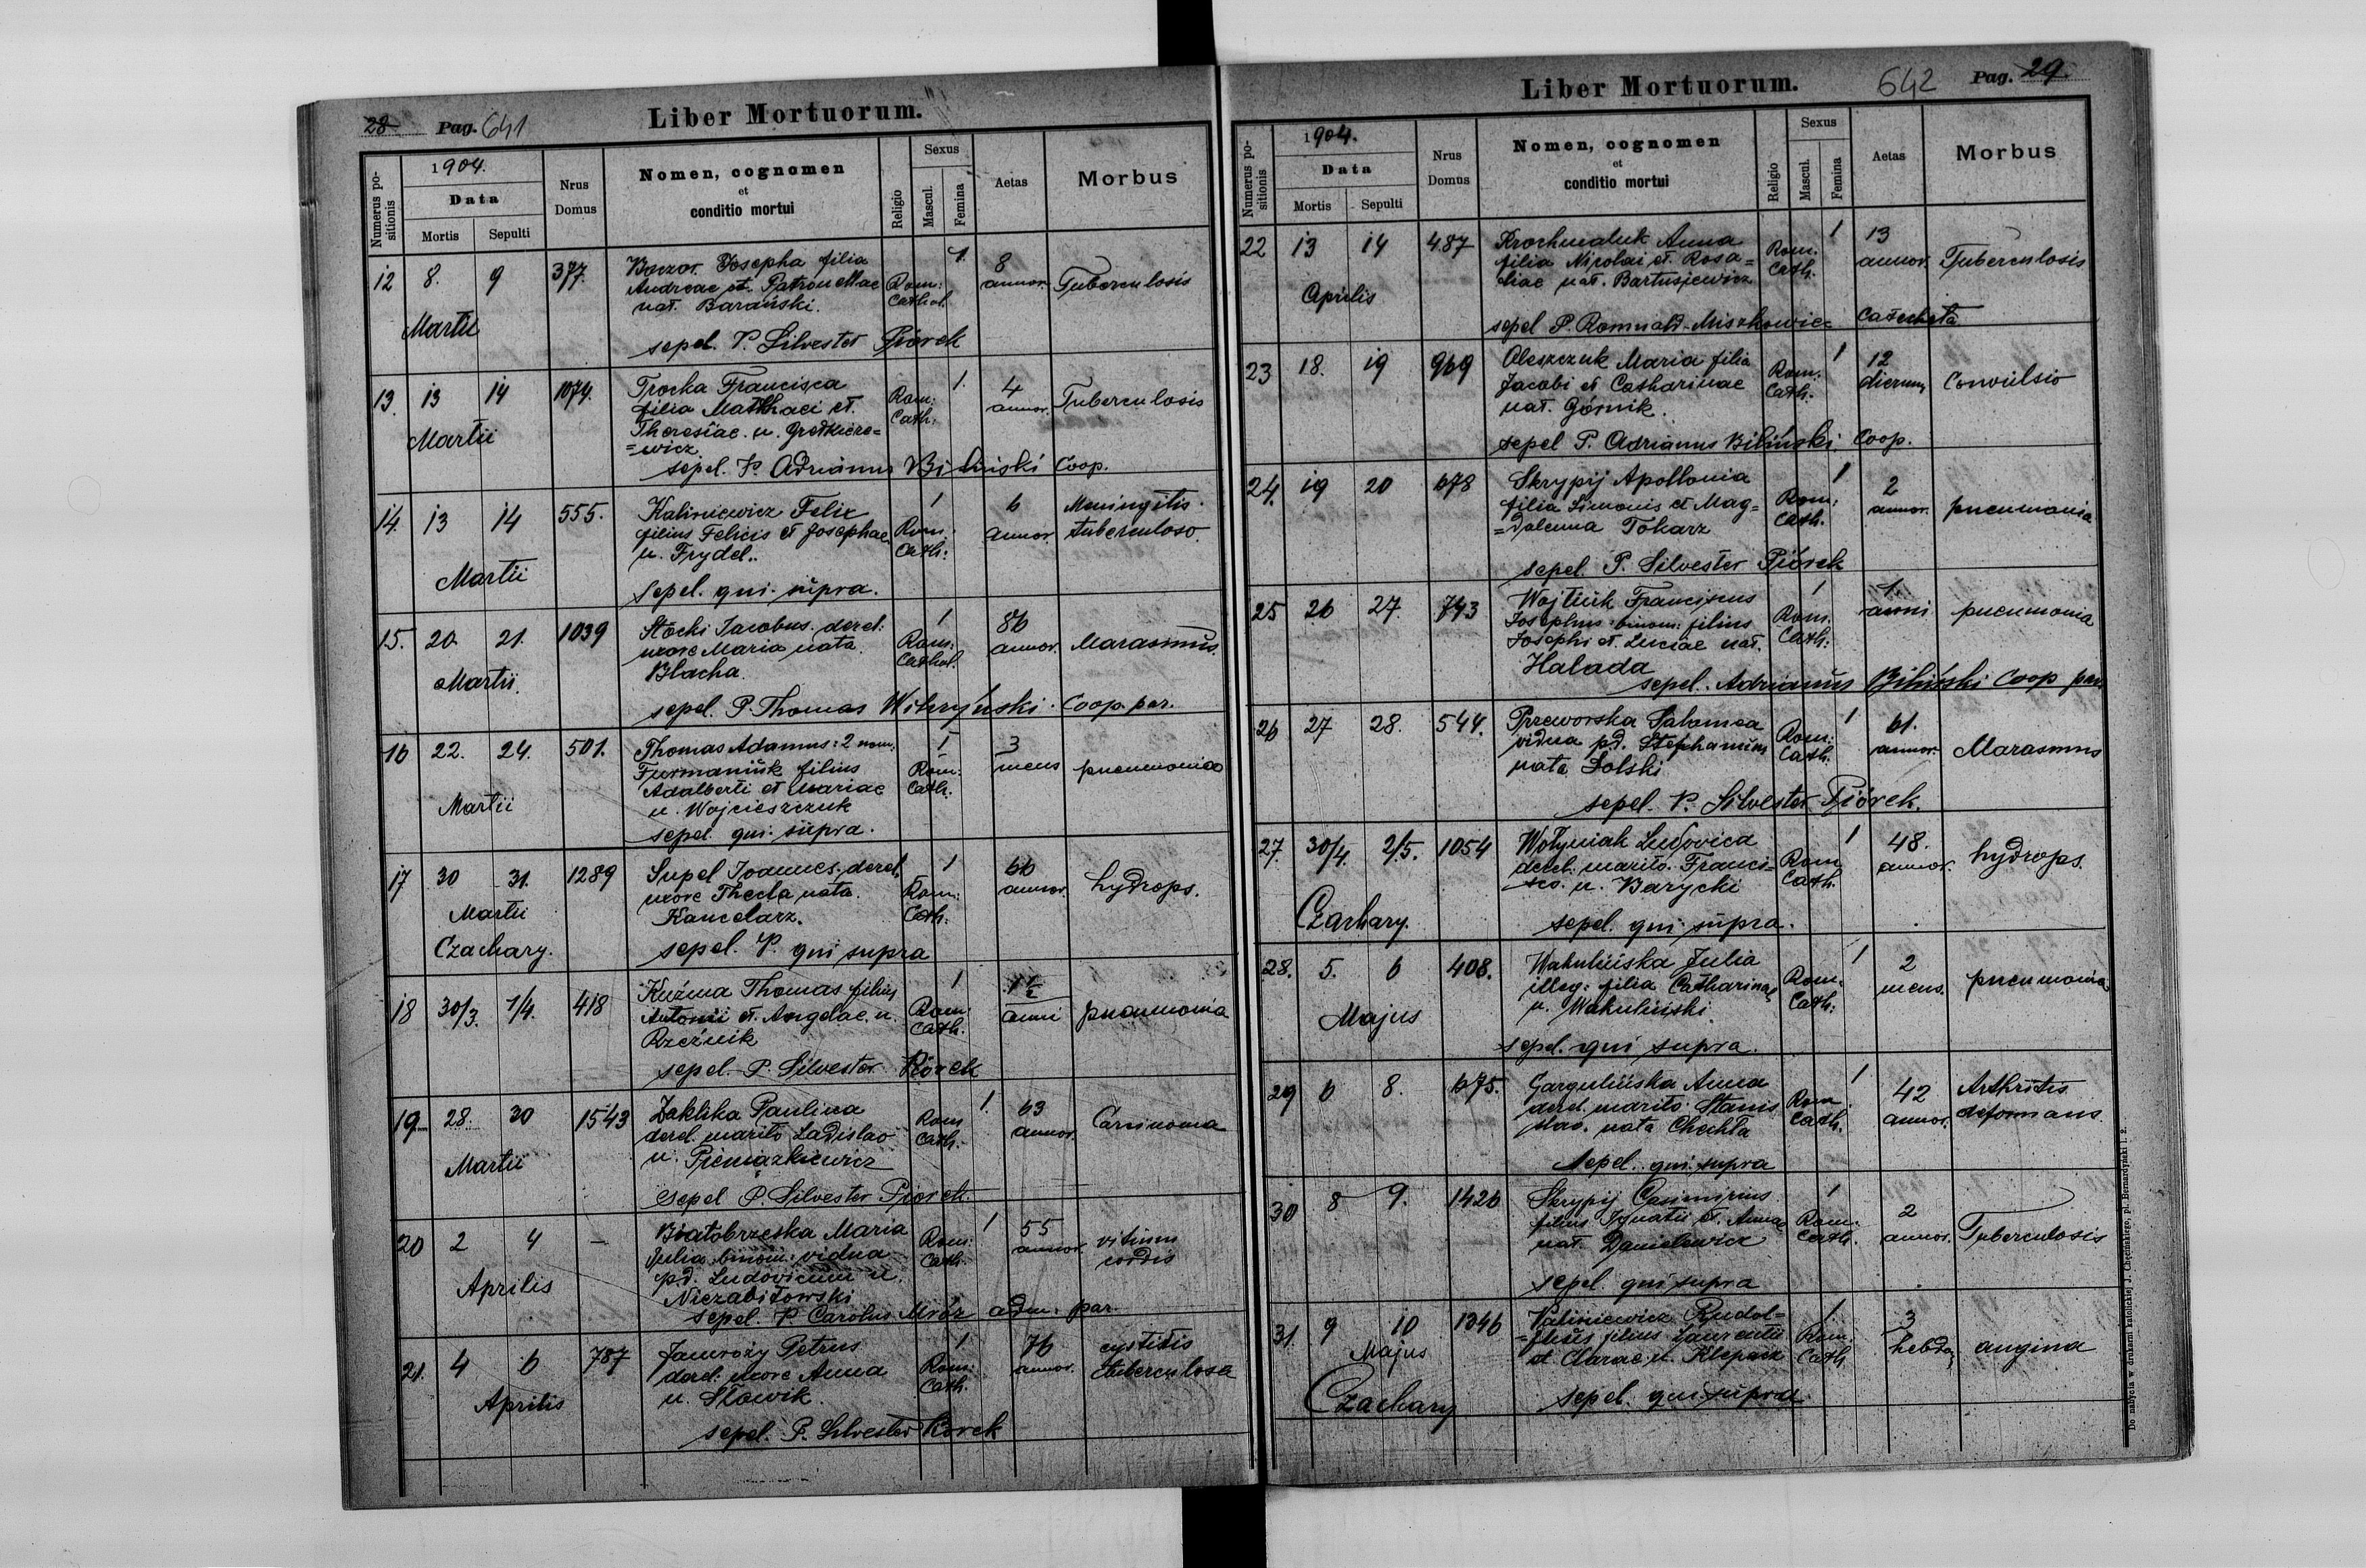 28 Pag. 641
Liber Mortuorum.
Numerus positionis
1904.
Data
Mortis
Sepulti
Nrus Domus
Nomen, cognomen
et
conditio mortui
Religio
Sexus
Mascul.
Femina
Aetas
Morbus
12 8. 9 377. Josepha filia Rom: Cathol. 1. 8 annor. Tuberculosis
Andreae et Petronellae
nat. Barański.
Martii
sepel. P. Silvester Piórek
13. 13 14 1074. Trocka Francisca Rom: Cath: 1. 4 annor. Tuberculosis
filia Matthaei et.
Theresiae. n.
=wicz
Martii
sepel. P. Adrianus Biliński Coop.
14. 13 14 555. Kaliniewicz Felix Rom: Cath: 1 6 annor. Meningitis tuberculoso
filius Felicis et Josephae
n. Frydel.
Martii
sepel. qui supra.
15. 20 21. 1039 Stocki Jacobus. derel: Rom: Cathol. 1 86 annor. Marasmus.
uxore Maria nata
Blacha.
Martii.
sepel. P. Thomas Coop. par.
16 22. 24. 501. Thomas Adamus: 2 nom. Rom: Cath: 1 3 mens pneumonia
Furmaniuk filius
Adalberti et Mariae
n. Wojcieszczuk
Martii
sepel. qui supra.
17 30 31. 1289 Supel Joannes. derel. Rom: Cath: 1 66 annor. hydrops.
uxore Thecla nata.
Kancelarz.
Martii
Czachary.
sepel. P. qui supra
18 30/3. 1/4. 418 Kuźma Thomas filius Rom: Cath: 1 1½ anni pneumonia
Antonii et. Angelae. n.
Rzeźnik
sepel. P. Silvester Piórek
19 28. 30 1543 Zaklika Paulina Rom Cath: 1. 63 annor. Carcinoma
derel. marito Ladislao
n. Pieniązkiewicz
Martii
sepel P. Silvester Piorek.
20 2 4 — Białobrzeska Maria Rom: Cath: 1 55 annor. vitium cordis
Julia binom: vidua
p.d. Ludovicum n.
Niezabitowski
Aprilis
sepel. P. Carolus Mróz adm. par.
21. 4 6 787 Jamroży Petrus Rom: Cath. 1 76 annor. cystitis tuberculosa
derel: uxore Anna
n. Słowik.
Aprilis
sepel. P. Silvester Piorek
Liber Mortuorum.
642 Pag. 29.
Numerus positionis
1904.
Data
Mortis
Sepulti
Nrus Domus
Nomen, cognomen
et
conditio mortui
Religio
Sexus
Mascul.
Femina
Aetas
Morbus
22 13 14 487 Krochmaluk Anna Rom: Cath. 1 13 annor. Tuberculosis
filia Nicolai et. Rosa=
liae nat. Bartusiewicz
Aprilis
sepel P. Romuald Miszkowicz Catecheta
23 18. 19 969 Oleszczuk Maria filia Rom: Cath. 1 12 dierum Convulsio
Jacobi et Catharinae
nat. Górnik.
sepel P. Adrianus Biliński. Coop.
24. 19 20 678 Skrypij Apollonia Rom: Cath. 1 2 annor. pneumonia
filia Simonis et Mag=
=dalenna Tokarz
sepel. P. Silvester Piórek
25 26 27. 743 Wojtiuk Franciscus Rom. Cath: 1 1. anni pneumonia
Josephus: binom: filius
Josephi et Luciae nat.
Halada
sepel. Adrianus Biliński Coop par
26 27 28. 544. Przeworska Salomea Rom: Cath. 1 61. annor. Marasmus
vidua p.d. Stephanum
nata Dolski
sepel. P. Silvester Piórek.
27. 30/4. 2/5. 1054 Wołyniak Ludovica Rom Cath. 1 48. annor. hydrops.
derel. marito. Franci=
sco. n. Barycki
Czachary.
sepel. qui supra.
28. 5. 6 408. Wakulińska Julia Rom: Cath: 1 2 mens. pneumonia
illeg: filia Catharinae
n. Wakuliński
Majus
sepel. qui supra.
29 6 8. 675. Gargulińska Anna Rom Cath. 1 42 annor. Arthritis deformans.
derel. marito. Stanis
slao. nata Chechła
sepel. qui supra
30 8 9. 1426 Skrypij Casimirius Rom: Cath. 1 2 annor. Tuberculosis
filius Ignatii et. Annae
nat. Danielewicz
sepel. qui supra
31. 9 10 1346 Kaliniewicz Rudol= Rom. Cath 1. 3 hebdo angina
=phus filius Laurentii
et Clarae n. Klepacz
Majus
Czachary
sepel. qui supra
Do nabycia w drukarni katolickiej J. Chęcińskiego, pl. Bernardyński l. 2.